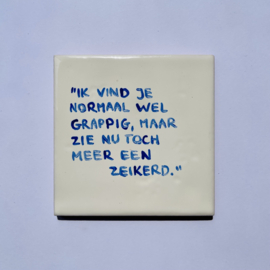 "IK VIND JE
NORMAAL WEL
GRAPPIG, MAAR
ZIE NU TOCH
MEER EEN
ZEIKERD."